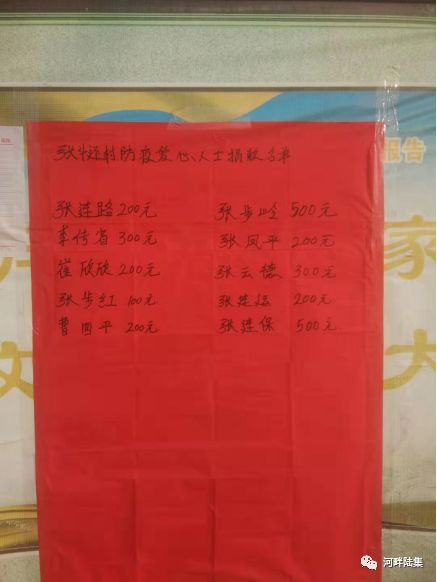 张圩村防疫爱心人士捐款名单
张连路 200元
张步岭 500元
李传省 300元
张凤平 200元
崔欣欣 200元
张云德 300元
张步红 100元
张连运 200元
曹四平 200元
张连保 500元
报告
家
文
大
河畔陆集